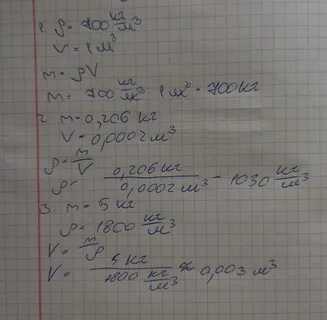 1. ρ = 700 кг/м³
V = 1 м³
m = ρV
m = 700 кг/м³ · 1 м³ = 700 кг
2. m = 0,206 кг
V = 0,0002 м³
ρ = m/V
ρ = 0,206 кг / 0,0002 м³ = 1030 кг/м³
3. m = 5 кг
ρ = 1800 кг/м³
V = m/ρ
V = 5 кг / 1800 кг/м³ ≈ 0,003 м³